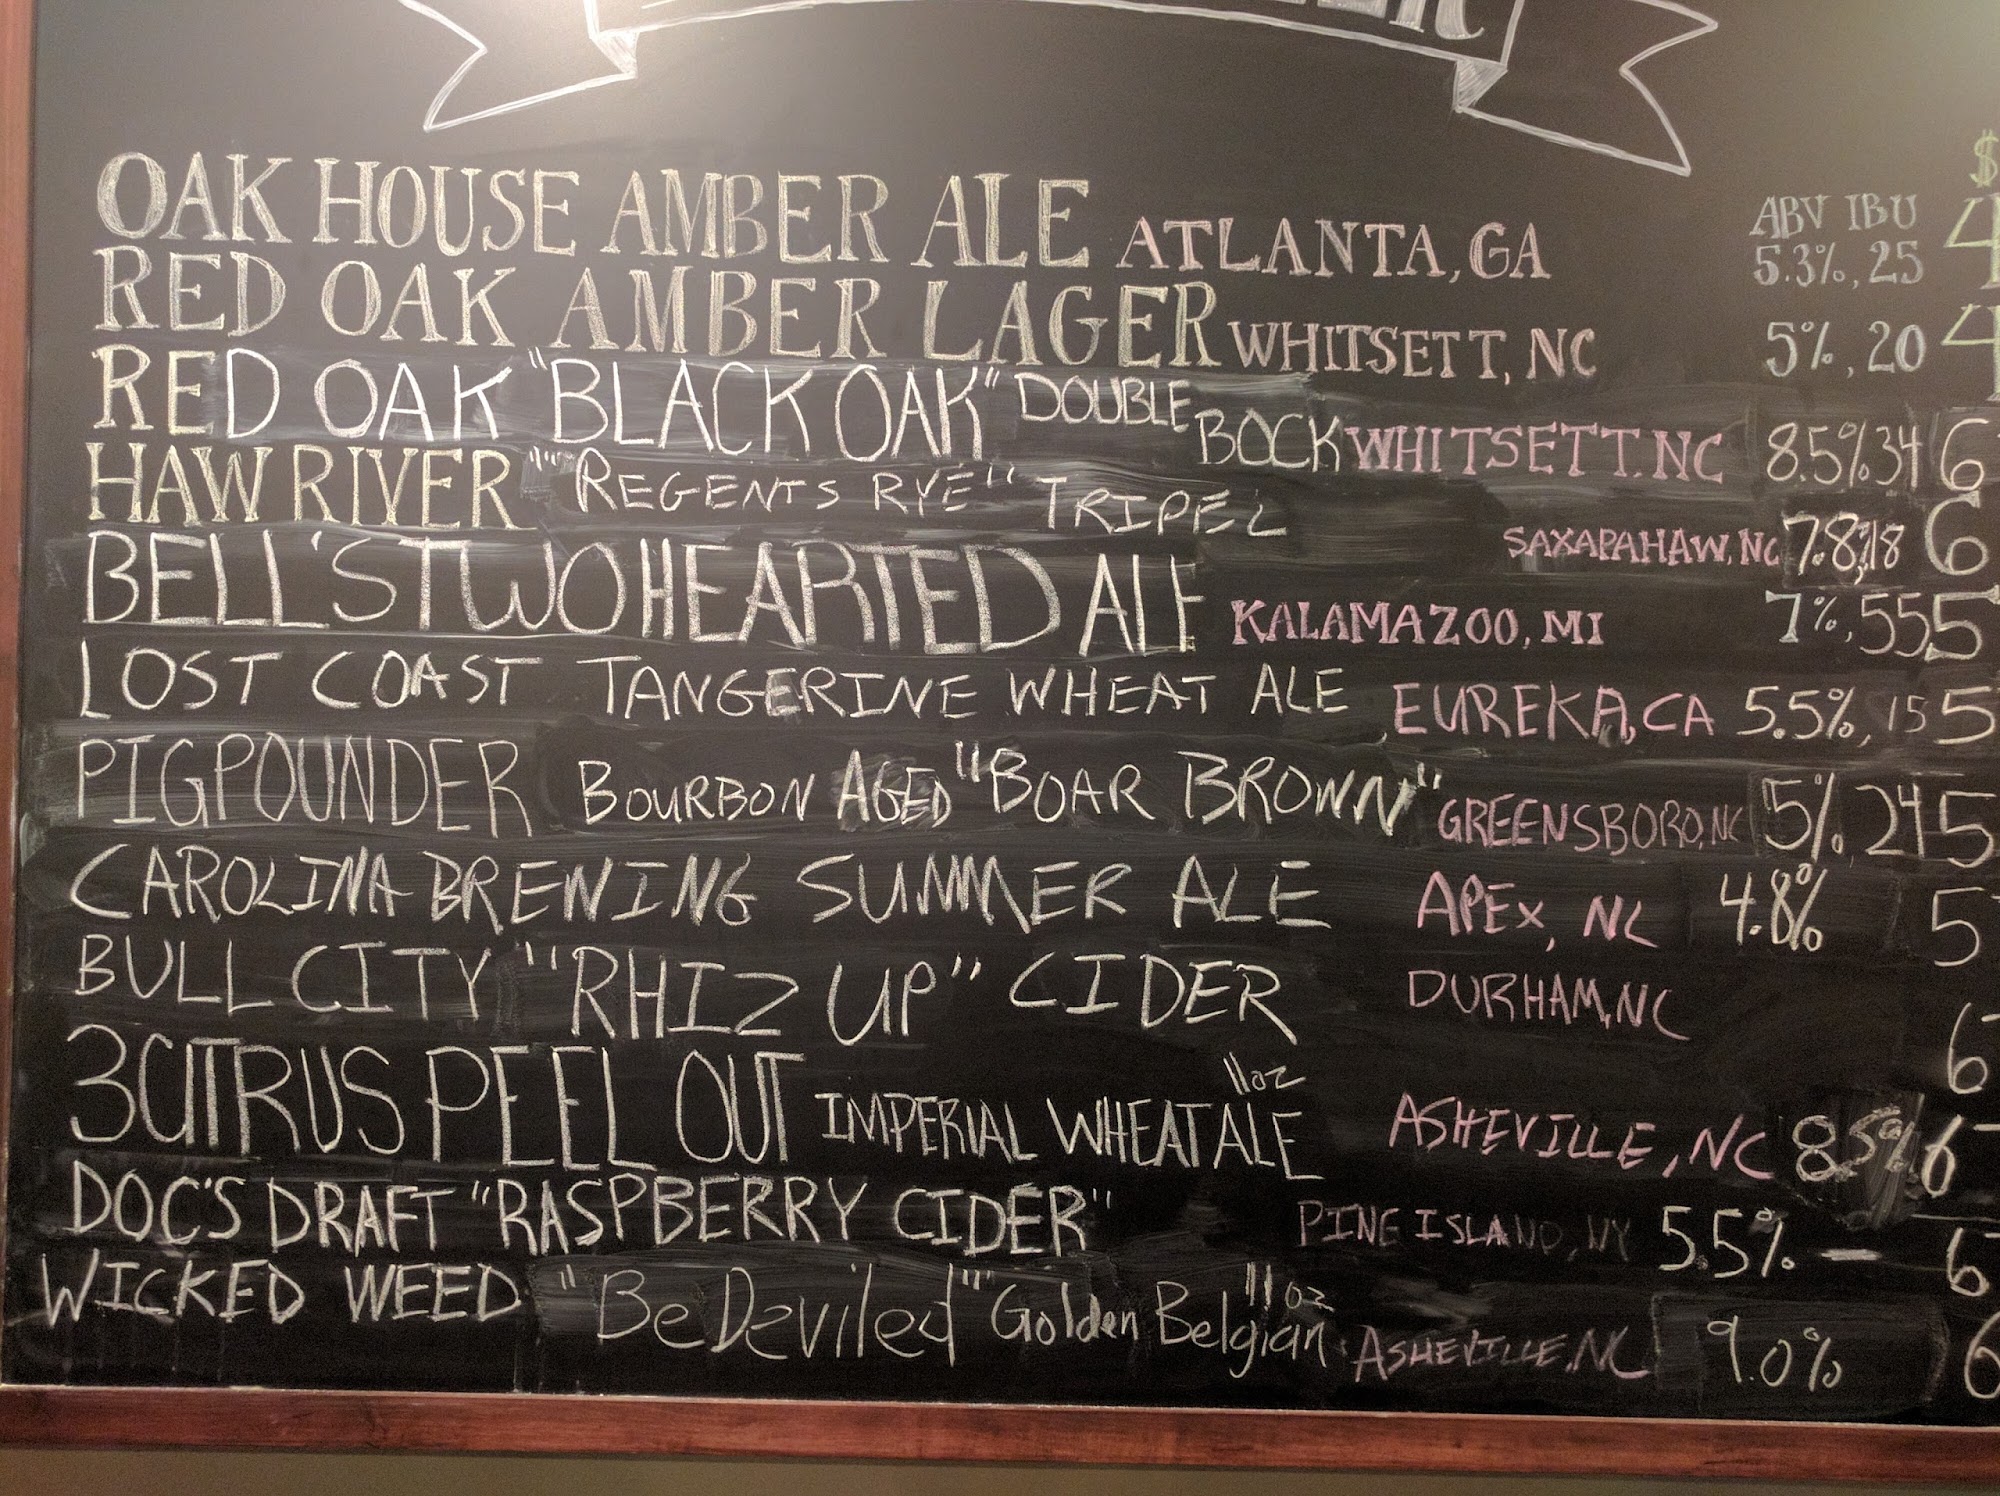 $
ABV IBU
OAK HOUSE AMBER ALE ATLANTA, GA 5.3%, 25 4
RED OAK AMBER LAGER WHITSETT, NC 5%, 20 4
RED OAK "BLACK OAK" DOUBLE BOCK WHITSETT. NC 8.5% 34 6
HAW RIVER "REGENTS RYE" TRIPEL SAXAPAHAW, NC 7.8, 18 6
BELL'S TWO HEARTED ALE KALAMAZOO, MI 7%, 55 5
LOST COAST TANGERINE WHEAT ALE EUREKA, CA 5.5%, 15 5
PIGPOUNDER BOURBON AGED "BOAR BROWN" GREENSBORO, NC 5%, 24 5
CAROLINA BREWING SUMMER ALE APEX, NC 4.8% 5
BULL CITY "RHIZ UP" CIDER DURHAM, NC 6
3 CITRUS PEEL OUT IMPERIAL WHEAT ALE 11oz ASHEVILLE, NC 8.5% 6
DOC'S DRAFT "RASPBERRY CIDER" PINE ISLAND, NY 5.5% — 6
WICKED WEED "BeDeviled" "Golden Belgian 11oz ASHEVILLE, NC 9.0% 6